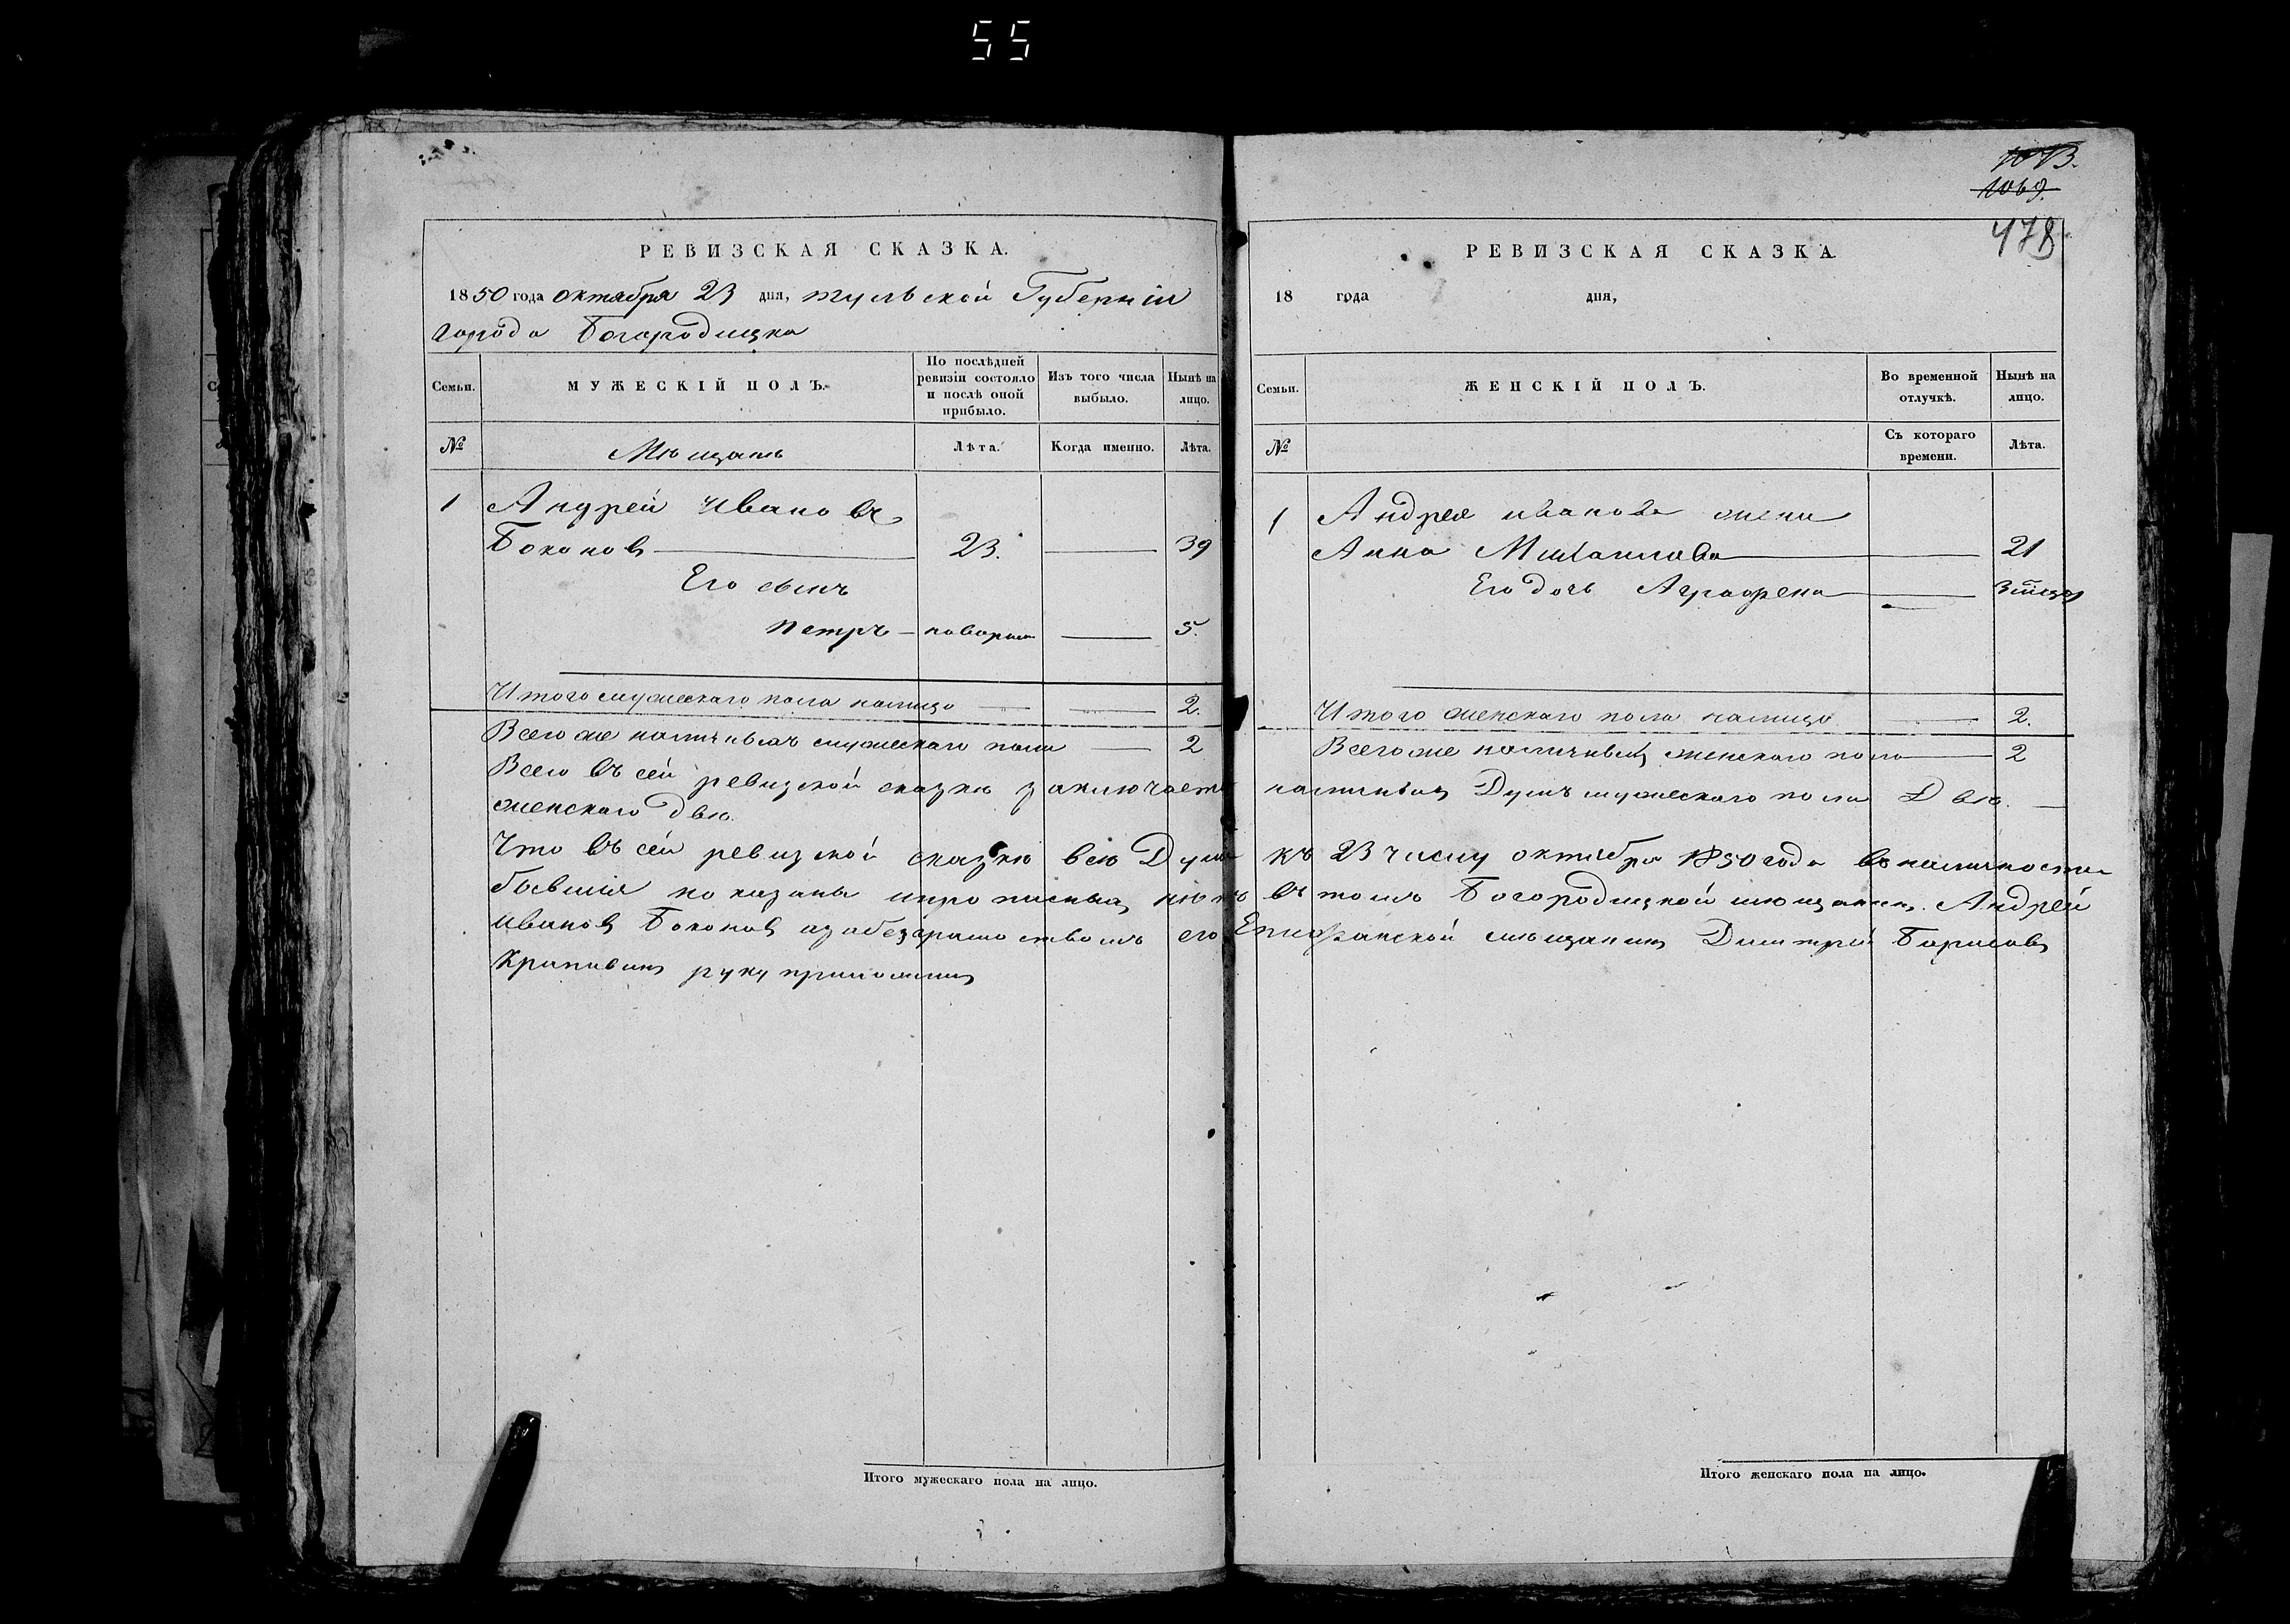 55
1073.
1069.
478
РЕВИЗСКАЯ СКАЗКА.
1850 года октября 23 дня, тульской Губерніи
города Богородицка
Семьи.
МУЖЕСКІЙ ПОЛЪ.
По послѣдней ревизіи состояло и послѣ оной прибыло.
Изъ того числа выбыло.
Нынѣ на лицо.
№
Мѣщанъ
Лѣта.
Когда именно.
Лѣта.
1 Андрей Ивановъ
Боконов 23. 39
Его сынъ
петръ 5.
Итого мужескаго пола налицо 2.
Всего же наличныхъ мужескаго пола 2
РЕВИЗСКАЯ СКАЗКА
18 года дня,
Семьи.
ЖЕНСКІЙ ПОЛЪ.
Во временной отлучкѣ.
Нынѣ на лицо.
№
Съ котораго времени.
Лѣта.
1 Андрея иванова жена
Анна Михаилова 21
Его дочь Аграфена
Итого женскаго пола налицо 2.
Всего же наличныхъ женскаго пола 2
Всего въ сей ревизской сказкѣ заключается наличныхъ Душъ мужескаго пола Двѣ.
женскаго двѣ.
Что въ сей ревизской сказкѣ всѣ Души къ 23 числу октября 1850 года въ наличности
бывшія показаны и прописныхъ нѣтъ въ томъ Богородицкой мѣщанинъ Андрей
иванов Боконов азабезграмотствомъ его Епифанской мѣщанинъ Дмитрій Борисовъ
Крапивинъ руку приложилъ
Итого мужескаго пола на лицо.
Итого женскаго пола на лицо.